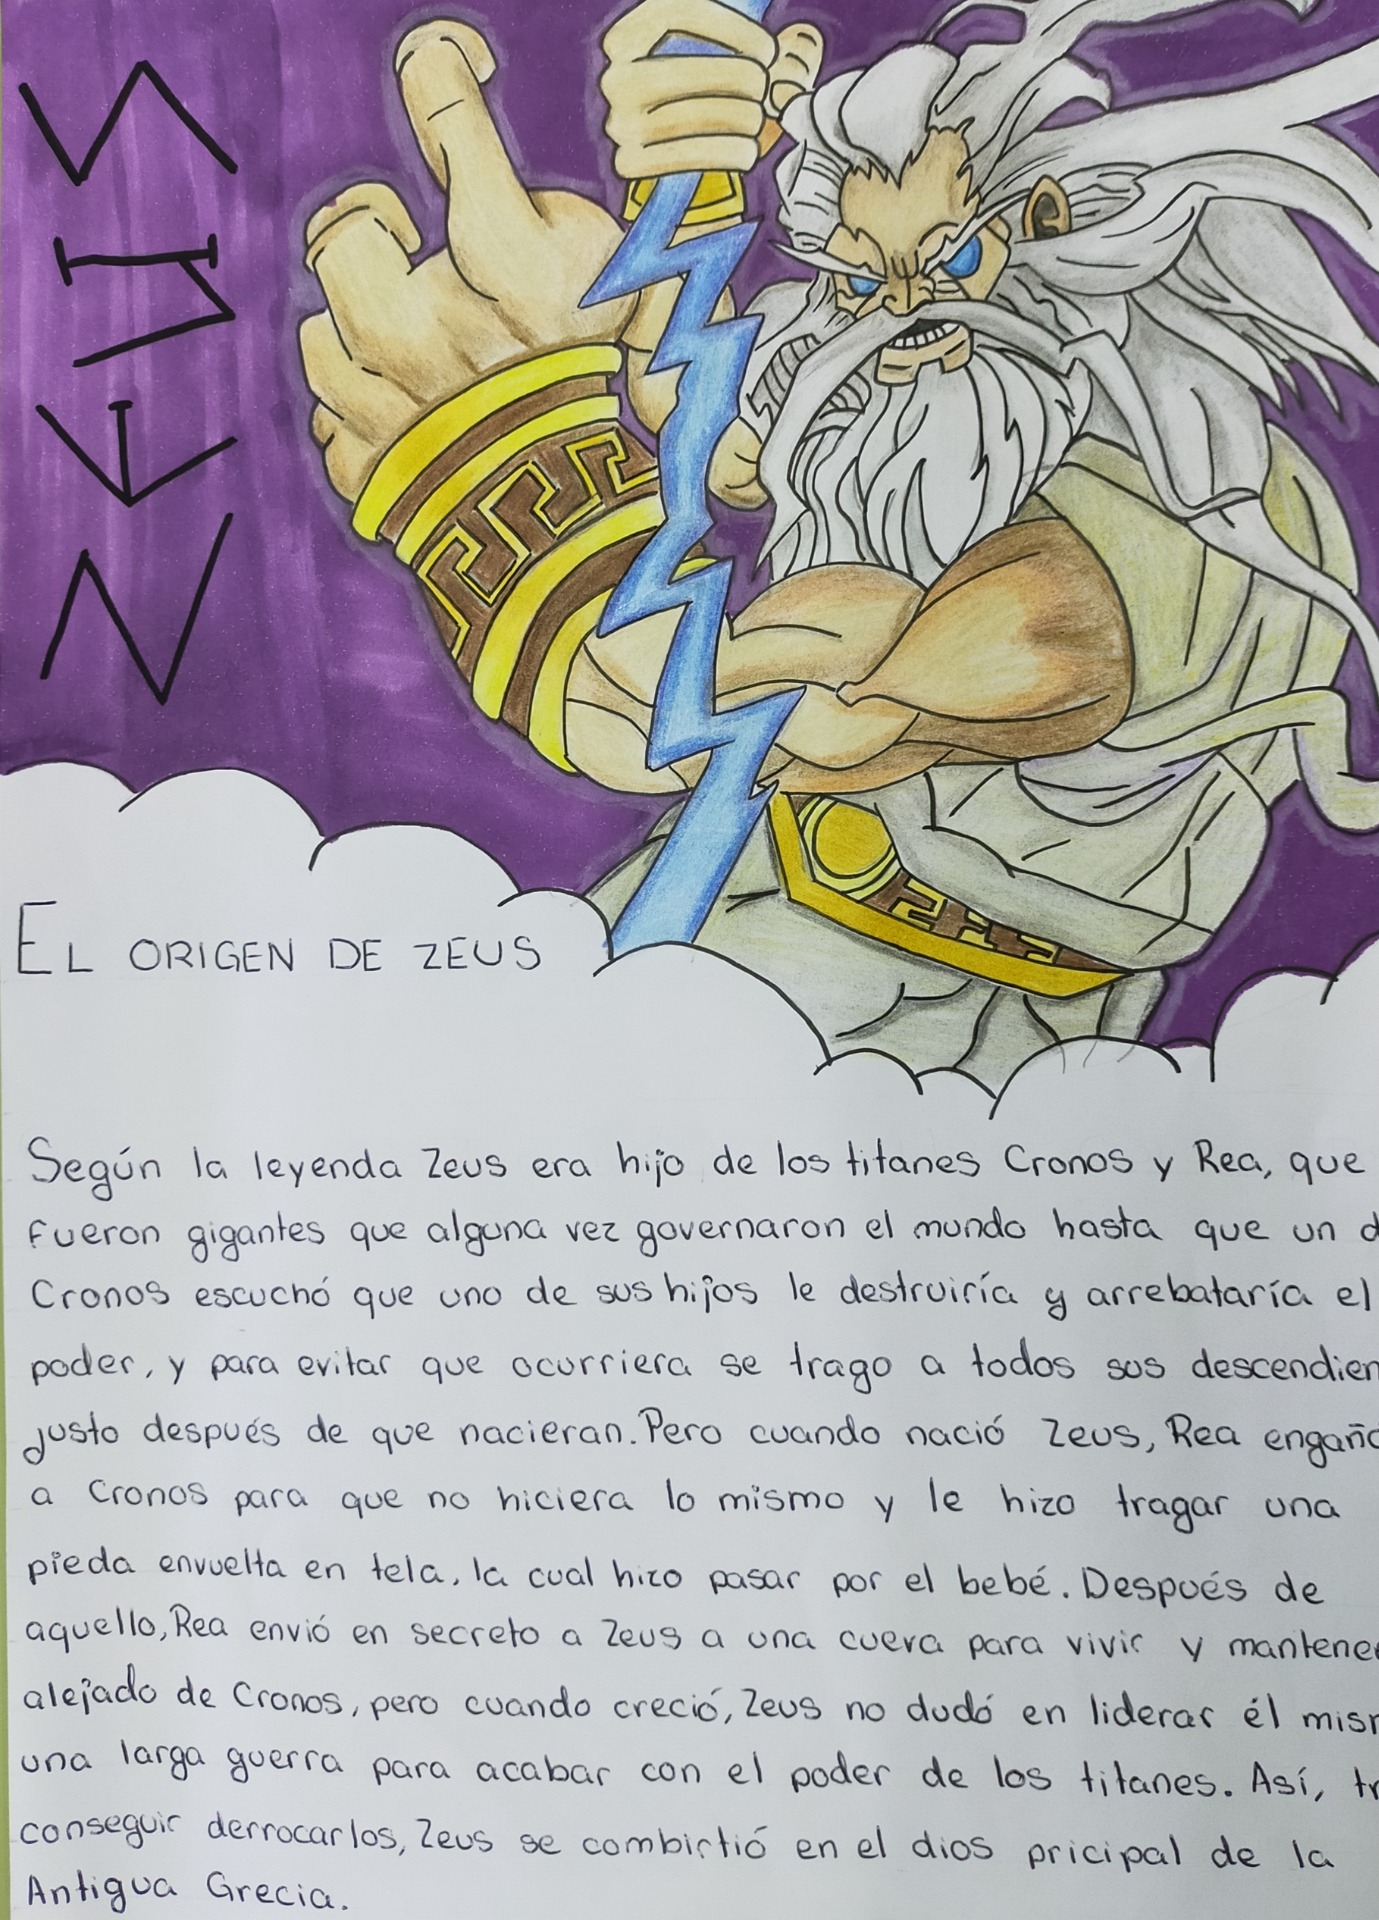 ZEUS
EL ORIGEN DE ZEUS
Según la leyenda Zeus era hijo de los titanes Cronos y Rea, que
fueron gigantes que alguna vez governaron el mundo hasta que un
Cronos escuchó que uno de sus hijos le destruiría y arrebataría el
poder, y para evitar que ocurriera se trago a todos sus descendien
justo después de que nacieran. Pero cuando nació Zeus, Rea engañó
a Cronos para que no hiciera lo mismo y le hizo tragar una
pieda envuelta en tela, la cual hizo pasar por el bebé. Después de
aquello, Rea envió en secreto a Zeus a una cueva para vivir y mantener
alejado de Cronos, pero cuando creció, Zeus no dudó en liderar él mism
una larga guerra para acabar con el poder de los titanes. Así, tr
conseguir derrocarlos, Zeus se combirtió en el dios pricipal de la
Antigua Grecia.